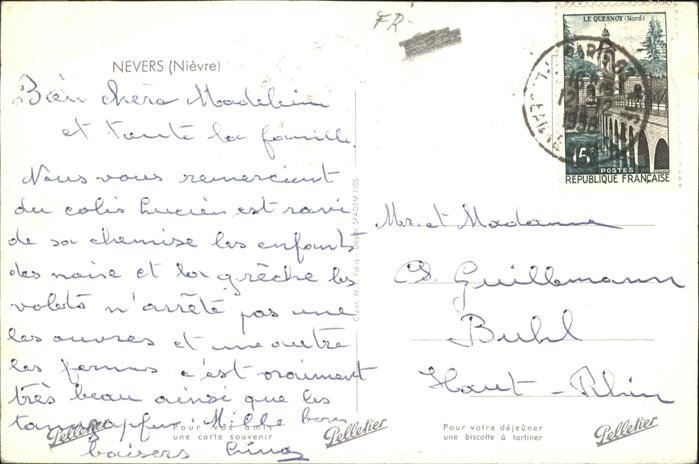 FR-
NEVERS (Nièvre)
Bien chère Madeleine
et toute la famille.
Nous vous remercient
du colis Lucien est ravi
de sa chemise les enfants
des noix et la crèche les
volets n'arrête pas une
les ouvres et une outre
les fermes c'est vraiment
très beau ainsi que les
Mille bons
baisers
LE QUESNOY (Nord)
15F
POSTES
REPUBLIQUE FRANÇAISE
Mr. et Madame
Guillemann
Buhl
Haut-Rhin
Pelletier
Pour vos amis
une carte souvenir
Pelletier
Pour votre déjeûner
une biscotte à tartiner
Pelletier